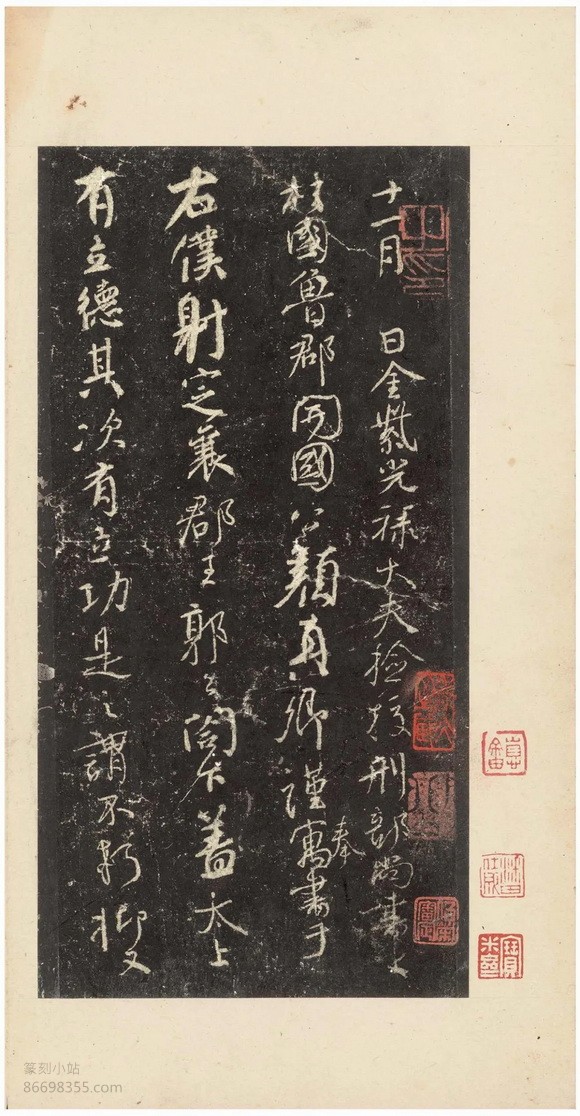 十一月 日金紫光祿大夫撿挍刑部尚書上
柱國魯郡開國公顏真卿謹奉寓書于
右僕射定襄郡王郭公閤下蓋太上
有立德其次有立功是之謂不朽抑又
篆刻小站
86698355.com